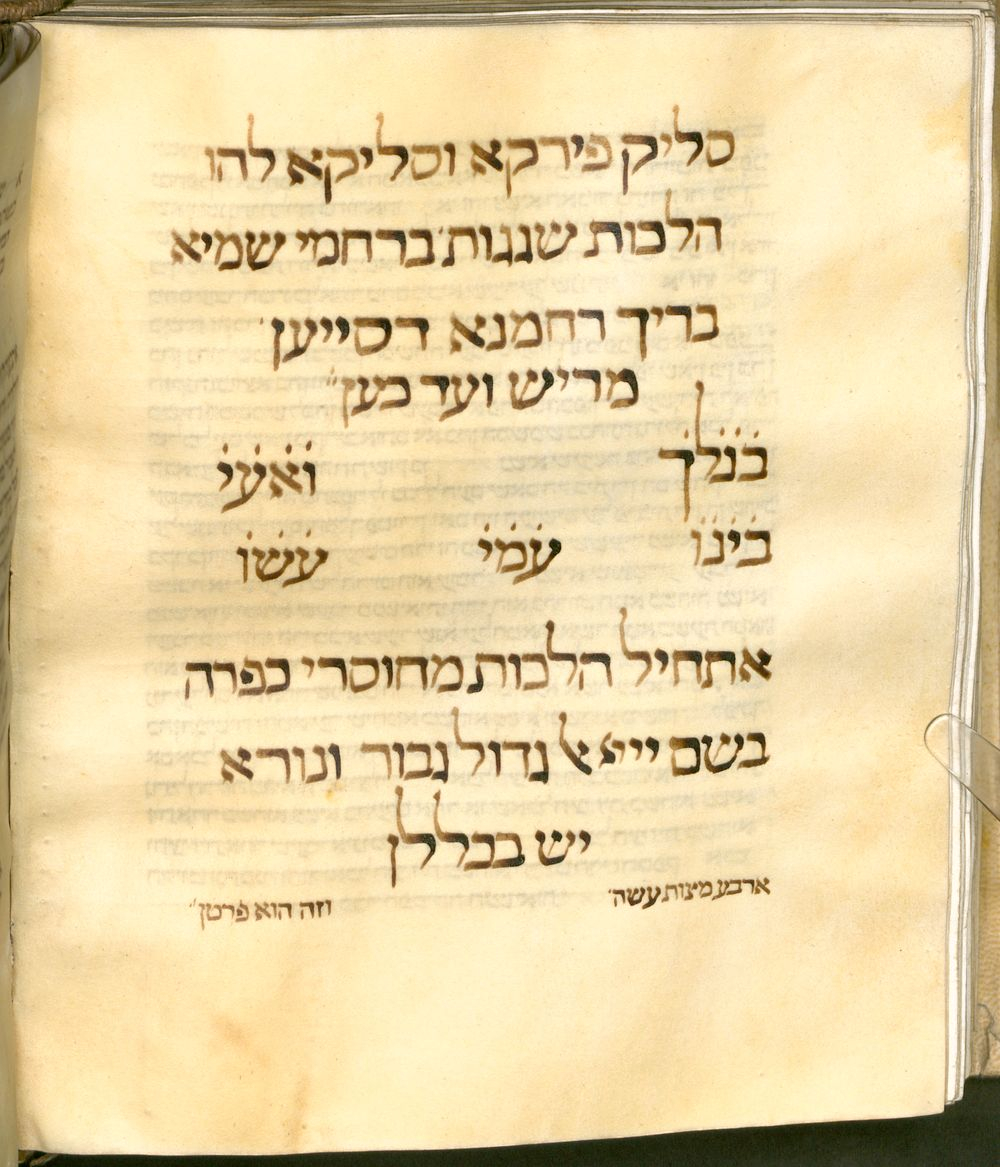 סליק פירקא וסליקא להו
הלכות שגגות ברחמי שמיא
בריך רחמנא דסייען
מריש ועד כען
בנלך ואעי
בינו עמי עשו
אתחיל הלכות מחוסרי כפרה
בשם ייי אל גדול גבור ונורא
יש בכללן
ארבע מצות עשה
וזה הוא פרטן